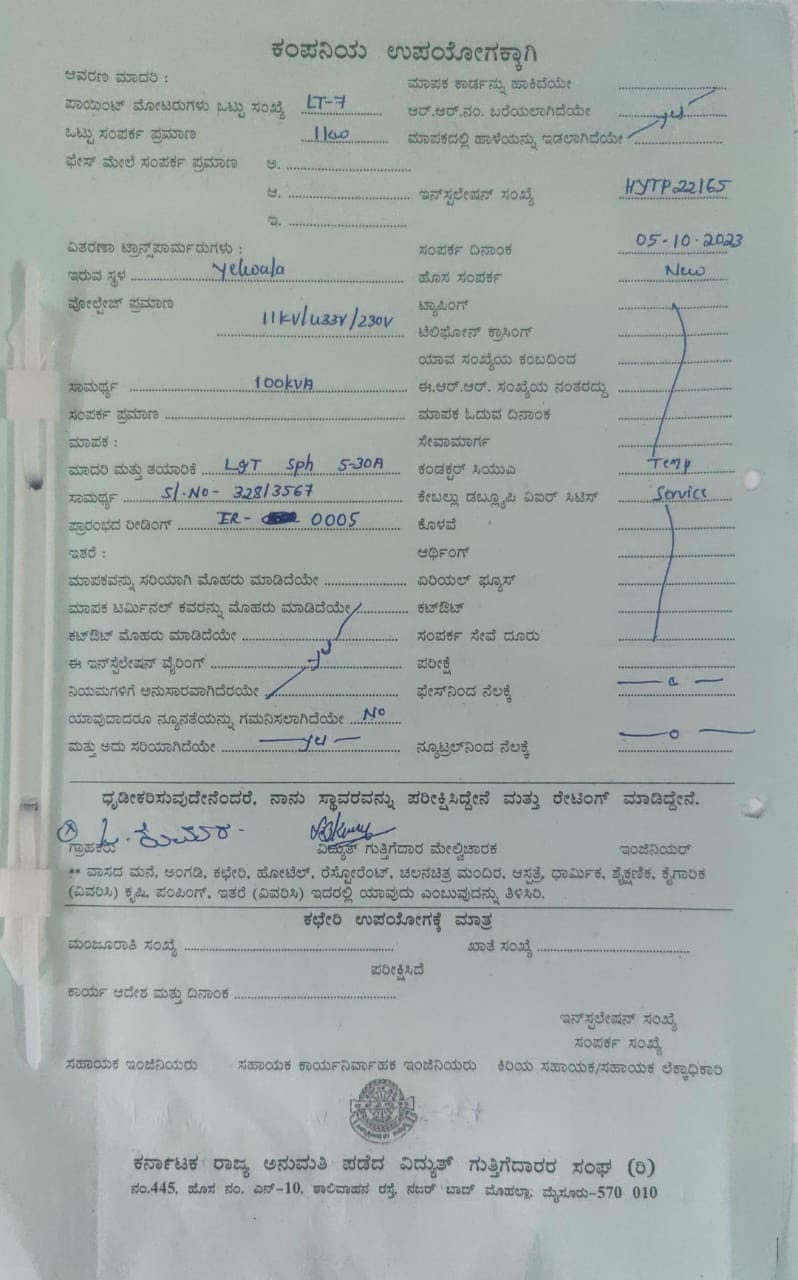 ಕಂಪನಿಯ ಉಪಯೋಗಕ್ಕಾಗಿ
ಆವರಣ ಮಾದರಿ :
ಮಾಪಕ ಕಾರ್ಡನ್ನು ಹಾಕಿದೆಯೇ
ಪಾಯಿಂಟ್ ಮೋಟರುಗಳು ಒಟ್ಟು ಸಂಖ್ಯೆ LT-7
ಆರ್.ಆರ್.ನಂ. ಬರೆಯಲಾಗಿದೆಯೇ yes
ಒಟ್ಟು ಸಂಪರ್ಕ ಪ್ರಮಾಣ
ಮಾಪಕದಲ್ಲಿ ಹಾಳೆಯನ್ನು ಇಡಲಾಗಿದೆಯೇ
ಫೇಸ್ ಮೇಲೆ ಸಂಪರ್ಕ ಪ್ರಮಾಣ ಅ.
ಆ.
ಇನ್‌ಸ್ಟಲೇಷನ್ ಸಂಖ್ಯೆ HYTP22165
ಇ.
ವಿತರಣಾ ಟ್ರಾನ್ಸ್‌ಪಾರ್ಮರುಗಳು :
ಸಂಪರ್ಕ ದಿನಾಂಕ 05-10-2023
ಇರುವ ಸ್ಥಳ Yelwala
ಹೊಸ ಸಂಪರ್ಕ New
ವೋಲ್ಟೇಜ್ ಪ್ರಮಾಣ 11KV/433V/230V
ಟ್ಯಾಪಿಂಗ್
ಟೆಲಿಫೋನ್ ಕ್ರಾಸಿಂಗ್
ಯಾವ ಸಂಖ್ಯೆಯ ಕಂಬದಿಂದ
ಸಾಮರ್ಥ್ಯ 100kVA
ಈ.ಆರ್.ಆರ್. ಸಂಖ್ಯೆಯ ನಂತರದ್ದು
ಸಂಪರ್ಕ ಪ್ರಮಾಣ
ಮಾಪಕ ಓದುವ ದಿನಾಂಕ
ಮಾಪಕ :
ಸೇವಾಮಾರ್ಗ
ಮಾದರಿ ಮತ್ತು ತಯಾರಿಕೆ L&T Sph 5-30A
ಕಂಡಕ್ಟರ್ ಸಿಯುಎ Temp
ಸಾಮರ್ಥ್ಯ Sl.No- 32813567
ಕೇಬಲ್ಲು ಡಬ್ಲ್ಯೂಪಿ ವಿಐರ್ ಸಿಟಿಸ್ Service
ಪ್ರಾರಂಭದ ರೀಡಿಂಗ್ IR- 0005
ಕೊಳವೆ
ಇತರೆ :
ಆರ್ಥಿಂಗ್
ಮಾಪಕವನ್ನು ಸರಿಯಾಗಿ ಮೊಹರು ಮಾಡಿದೆಯೇ
ಏರಿಯಲ್ ಫ್ಯೂಸ್
ಮಾಪಕ ಟರ್ಮಿನಲ್ ಕವರನ್ನು ಮೊಹರು ಮಾಡಿದೆಯೇ
ಕಟ್‌ಔಟ್
ಕಟ್‌ಔಟ್ ಮೊಹರು ಮಾಡಿದೆಯೇ
ಸಂಪರ್ಕ ಸೇವೆ ದೂರು
ಈ ಇನ್‌ಸ್ಟೆಲೇಷನ್ ವೈರಿಂಗ್
ಪರೀಕ್ಷೆ
ನಿಯಮಗಳಿಗೆ ಅನುಸಾರವಾಗಿದೆರಯೇ
ಫೇಸ್‌ನಿಂದ ನೆಲಕ್ಕೆ
ಯಾವುದಾದರೂ ನ್ಯೂನತೆಯನ್ನು ಗಮನಿಸಲಾಗಿದೆಯೇ No
ಮತ್ತು ಅದು ಸರಿಯಾಗಿದೆಯೇ — yes —
ನ್ಯೂಟ್ರಲ್‌ನಿಂದ ನೆಲಕ್ಕೆ — o —
ಧೃಡೀಕರಿಸುವುದೇನೆಂದರೆ, ನಾನು ಸ್ಥಾವರವನ್ನು ಪರೀಕ್ಷಿಸಿದ್ದೇನೆ ಮತ್ತು ರೇಟಿಂಗ್ ಮಾಡಿದ್ದೇನೆ.
ಗ್ರಾಹಕರು ವಿದ್ಯುತ್ ಗುತ್ತಿಗೆದಾರ ಮೇಲ್ವಿಚಾರಕ ಇಂಜಿನಿಯರ್
** ವಾಸದ ಮನೆ, ಅಂಗಡಿ, ಕಛೇರಿ, ಹೋಟೆಲ್, ರೆಸ್ಟೋರೆಂಟ್, ಚಲನಚಿತ್ರ ಮಂದಿರ, ಆಸ್ಪತ್ರೆ, ಧಾರ್ಮಿಕ, ಶೈಕ್ಷಣಿಕ, ಕೈಗಾರಿಕ
(ವಿವರಿಸಿ) ಕೃಷಿ, ಪಂಪಿಂಗ್, ಇತರೆ (ವಿವರಿಸಿ) ಇದರಲ್ಲಿ ಯಾವುದು ಎಂಬುವುದನ್ನು ತಿಳಿಸಿರಿ.
ಕಛೇರಿ ಉಪಯೋಗಕ್ಕೆ ಮಾತ್ರ
ಮಂಜೂರಾತಿ ಸಂಖ್ಯೆ
ಖಾತೆ ಸಂಖ್ಯೆ
ಪರೀಕ್ಷಿಸಿದೆ
ಕಾರ್ಯ ಆದೇಶ ಮತ್ತು ದಿನಾಂಕ
ಇನ್‌ಸ್ಟಲೇಷನ್ ಸಂಖ್ಯೆ
ಸಂಪರ್ಕ ಸಂಖ್ಯೆ
ಸಹಾಯಕ ಇಂಜಿನಿಯರು ಸಹಾಯಕ ಕಾರ್ಯನಿರ್ವಾಹಕ ಇಂಜಿನಿಯರು ಕಿರಿಯ ಸಹಾಯಕ/ಸಹಾಯಕ ಲೆಕ್ಕಾಧಿಕಾರಿ
ಕರ್ನಾಟಕ ರಾಜ್ಯ ಅನುಮತಿ ಪಡೆದ ವಿದ್ಯುತ್ ಗುತ್ತಿಗೆದಾರರ ಸಂಘ (ರಿ)
ನಂ.445, ಹೊಸ ನಂ. ಎನ್-10, ಶಾಲಿವಾಹನ ರಸ್ತೆ, ನಜರ್ ಬಾದ್ ಮೊಹಲ್ಲಾ, ಮೈಸೂರು-570 010